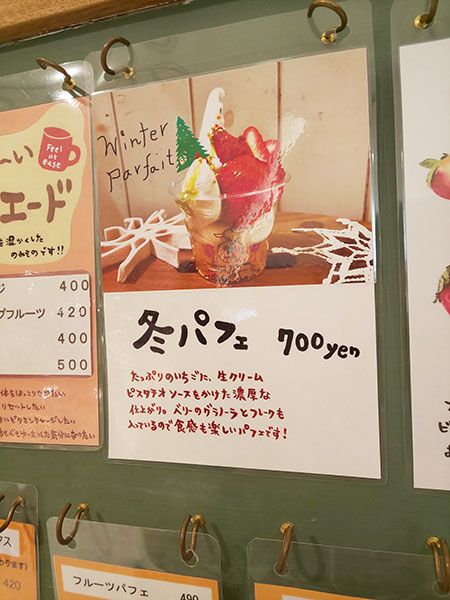 Winter
Parfait
冬パフェ 700yen
たっぷりのいちごに、生クリーム
ピスタチオソースもかけた濃厚な
仕上がり。ベリーのグラノーラとフレークも
入っているので食感も楽しいパフェです！
Feel
at
ease
エード
温かくした
のみものです!!
400
フルーツ 420
400
500
リセットしたい
420
フルーツパフェ
490